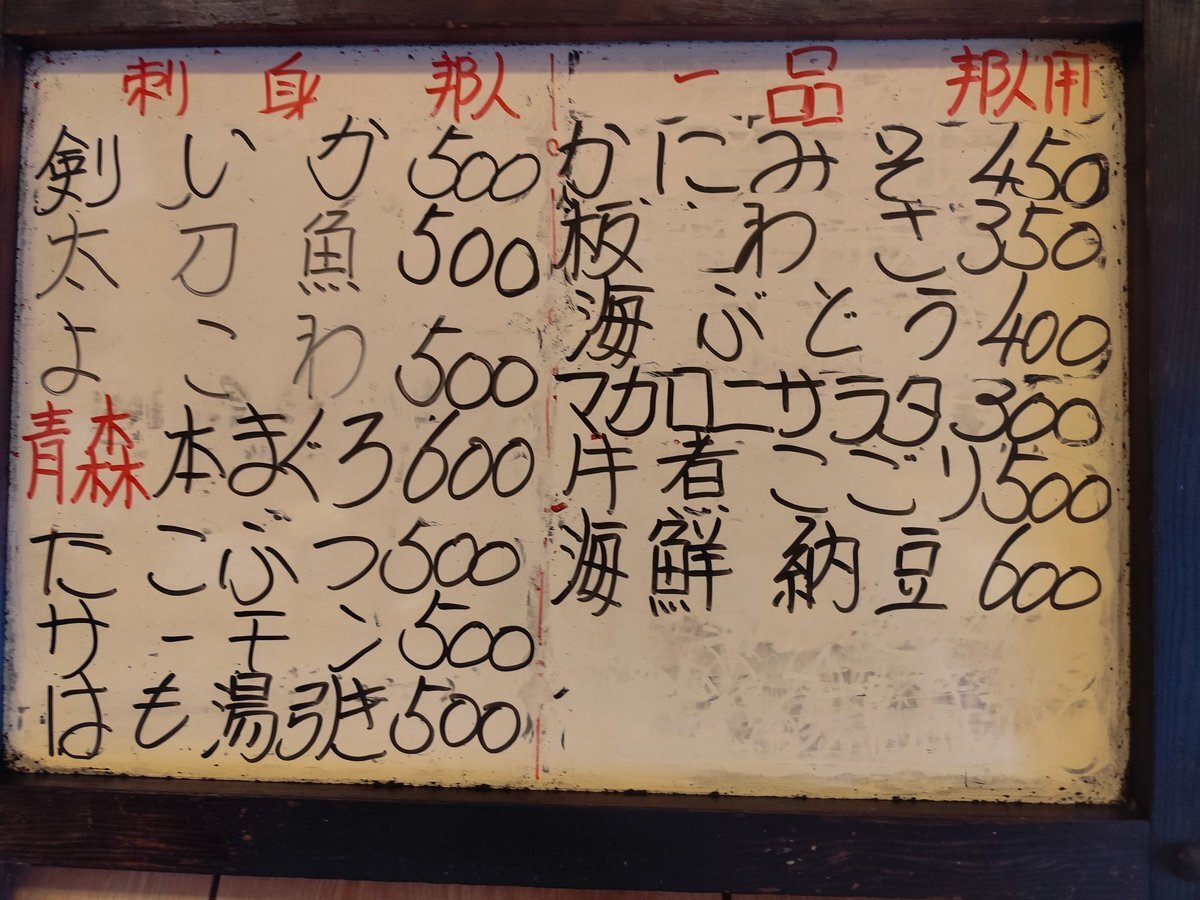 刺身 邦人
剣いか 500
太刀魚 500
よこわ 500
青森本まぐろ 600
たこぶつ 500
サーモン 500
はも湯引き 500
一品 邦人用
かにみそ 450
板わさ 350
海ぶどう 400
マカロニサラダ 300
牛煮こごり 500
海鮮納豆 600